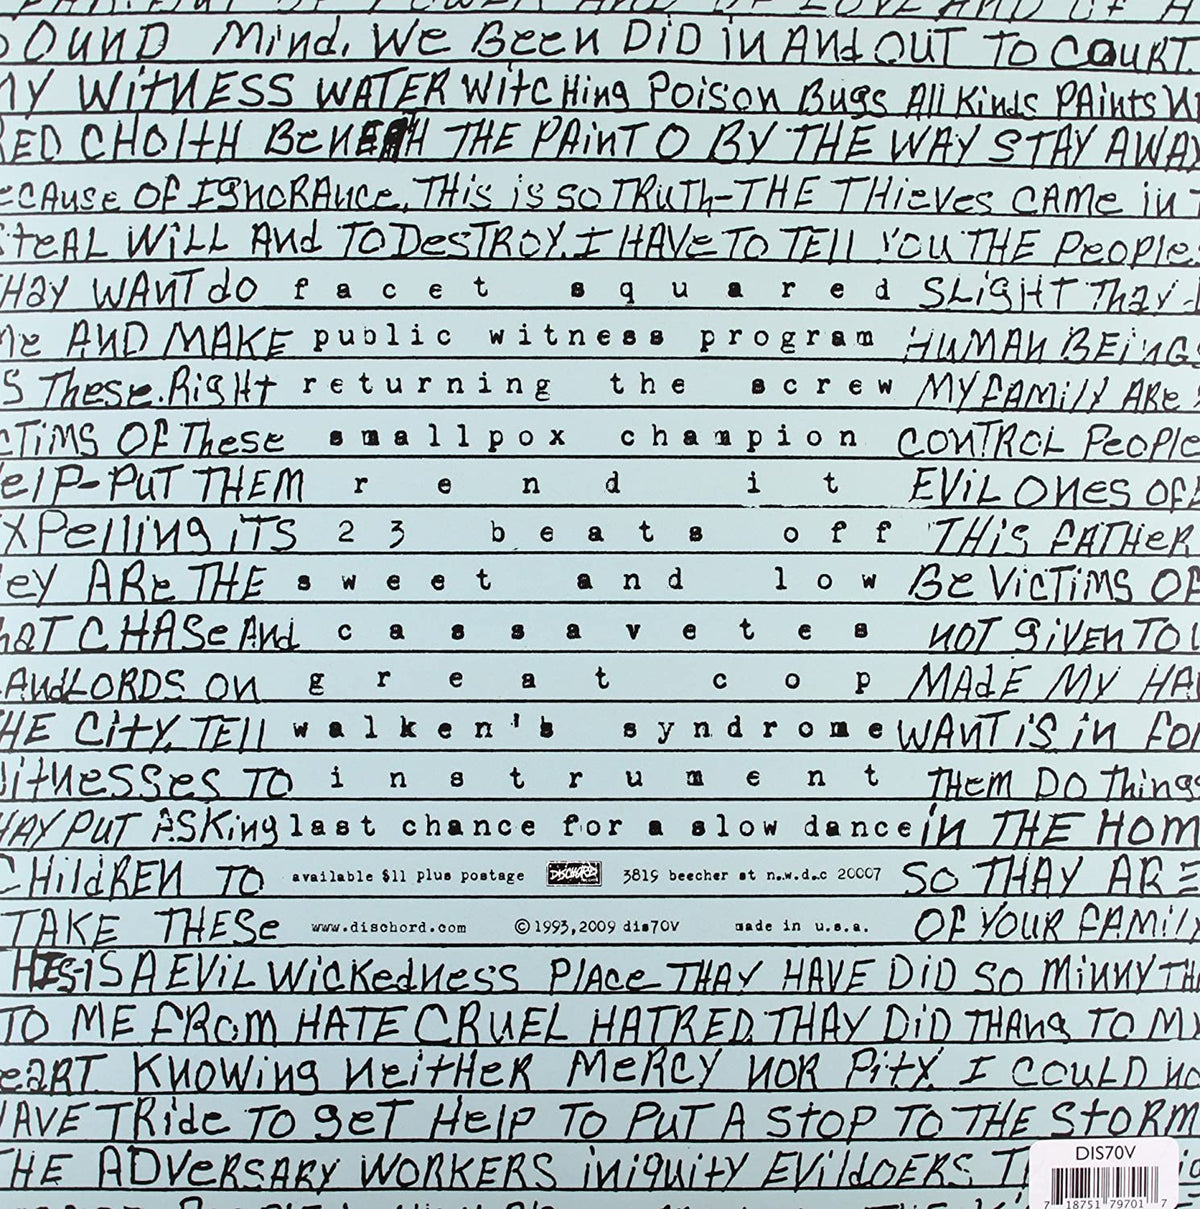 OUND Mind. We Been DiD in ANd OUT TO COURT.
MY WiTNESS WATER WiTC Hing Poison Bugs All Kinds PAints
RED CHOItH BeneATH THE PAinT O BY THE WAY STAY AWAY
ecause OF IgnORAnce, THis is so TRuTh-THE THieves CAMe in
STeAL WiLL ANd TO DesTROY. I HAVe TO TEll YOU THE People.
THay WANT do facet squared SLigHT Thay
me AND MAKE public witness program HUMAN BEiNGS
These. RigHt returning the screw MY FAMily ARe
cTiMS OF These smallpox champion CONTROL People
elP-PUT THEM rend it EViL ONes OF
XPelling iTS 23 beats off THis FATHER
ey ARe THE sweet and low Be VicTiMS OF
haT CHASe And cassavetes NOT giVEN TO
LANdLORDS ON great cop MAdE MY HA
THE CiTY. TEll walken's syndrome WANT iS in FOR
WiTnesses TO instrument THEM DO Things
HAY PUT ASKing last chance for a slow dance iN THE HOM
CHildREN TO available $11 plus postage DISCHORD 3819 beecher st n.w.d.c 20007 SO THAY ARE
TAKE THESe www.dischord.com ©1993,2009 dis70V made in u.s.a. OF YOUR FAMily
THIS-iS A EViL WicKedness PlAce THAY HAVE DiD SO MiNNY TH
TO ME FROM HATE CRUEL HATRED. THAY DiD THANg TO M
eaRT KNOWing NeitHeR MeRCY NOR PiTY. I COULD no
HAVE TRide TO geT Help TO PUT A STOP TO THE STORM
THE ADVeRSARY WORKERS iNiquitY EVildOERS
DIS70V
7 18751 79701 7